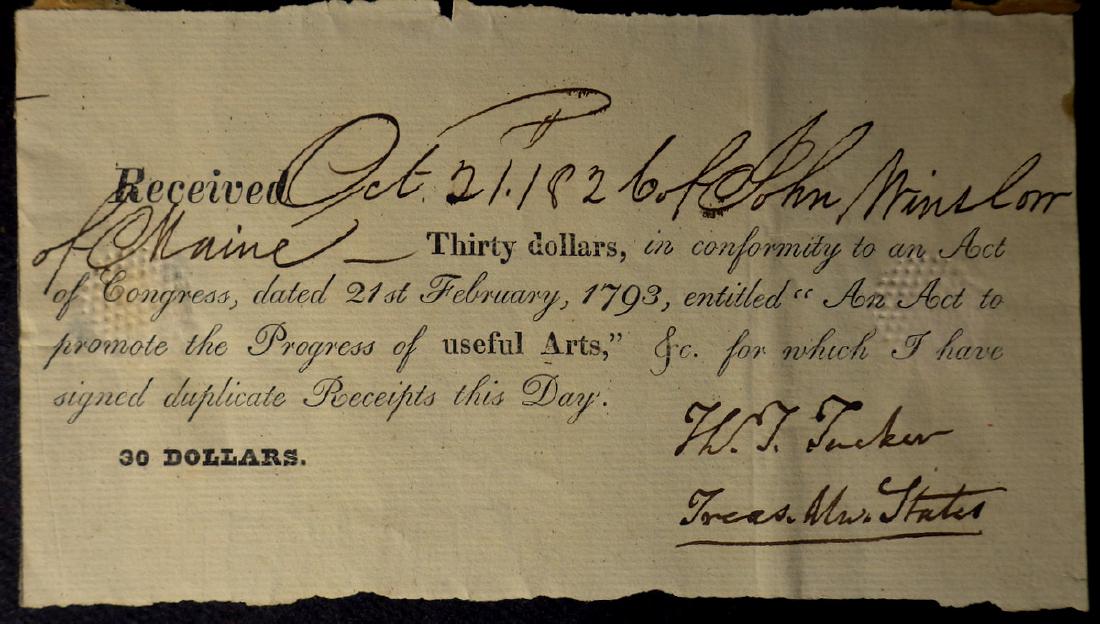 Received Oct. 21. 1826 of John Winslow
of Maine — Thirty dollars, in conformity to an Act
of Congress, dated 21st February, 1793, entitled “ An Act to
promote the Progress of useful Arts,” &c. for which I have
signed duplicate Receipts this Day.
Th. T. Tucker
30 DOLLARS.
Treas. Un. States